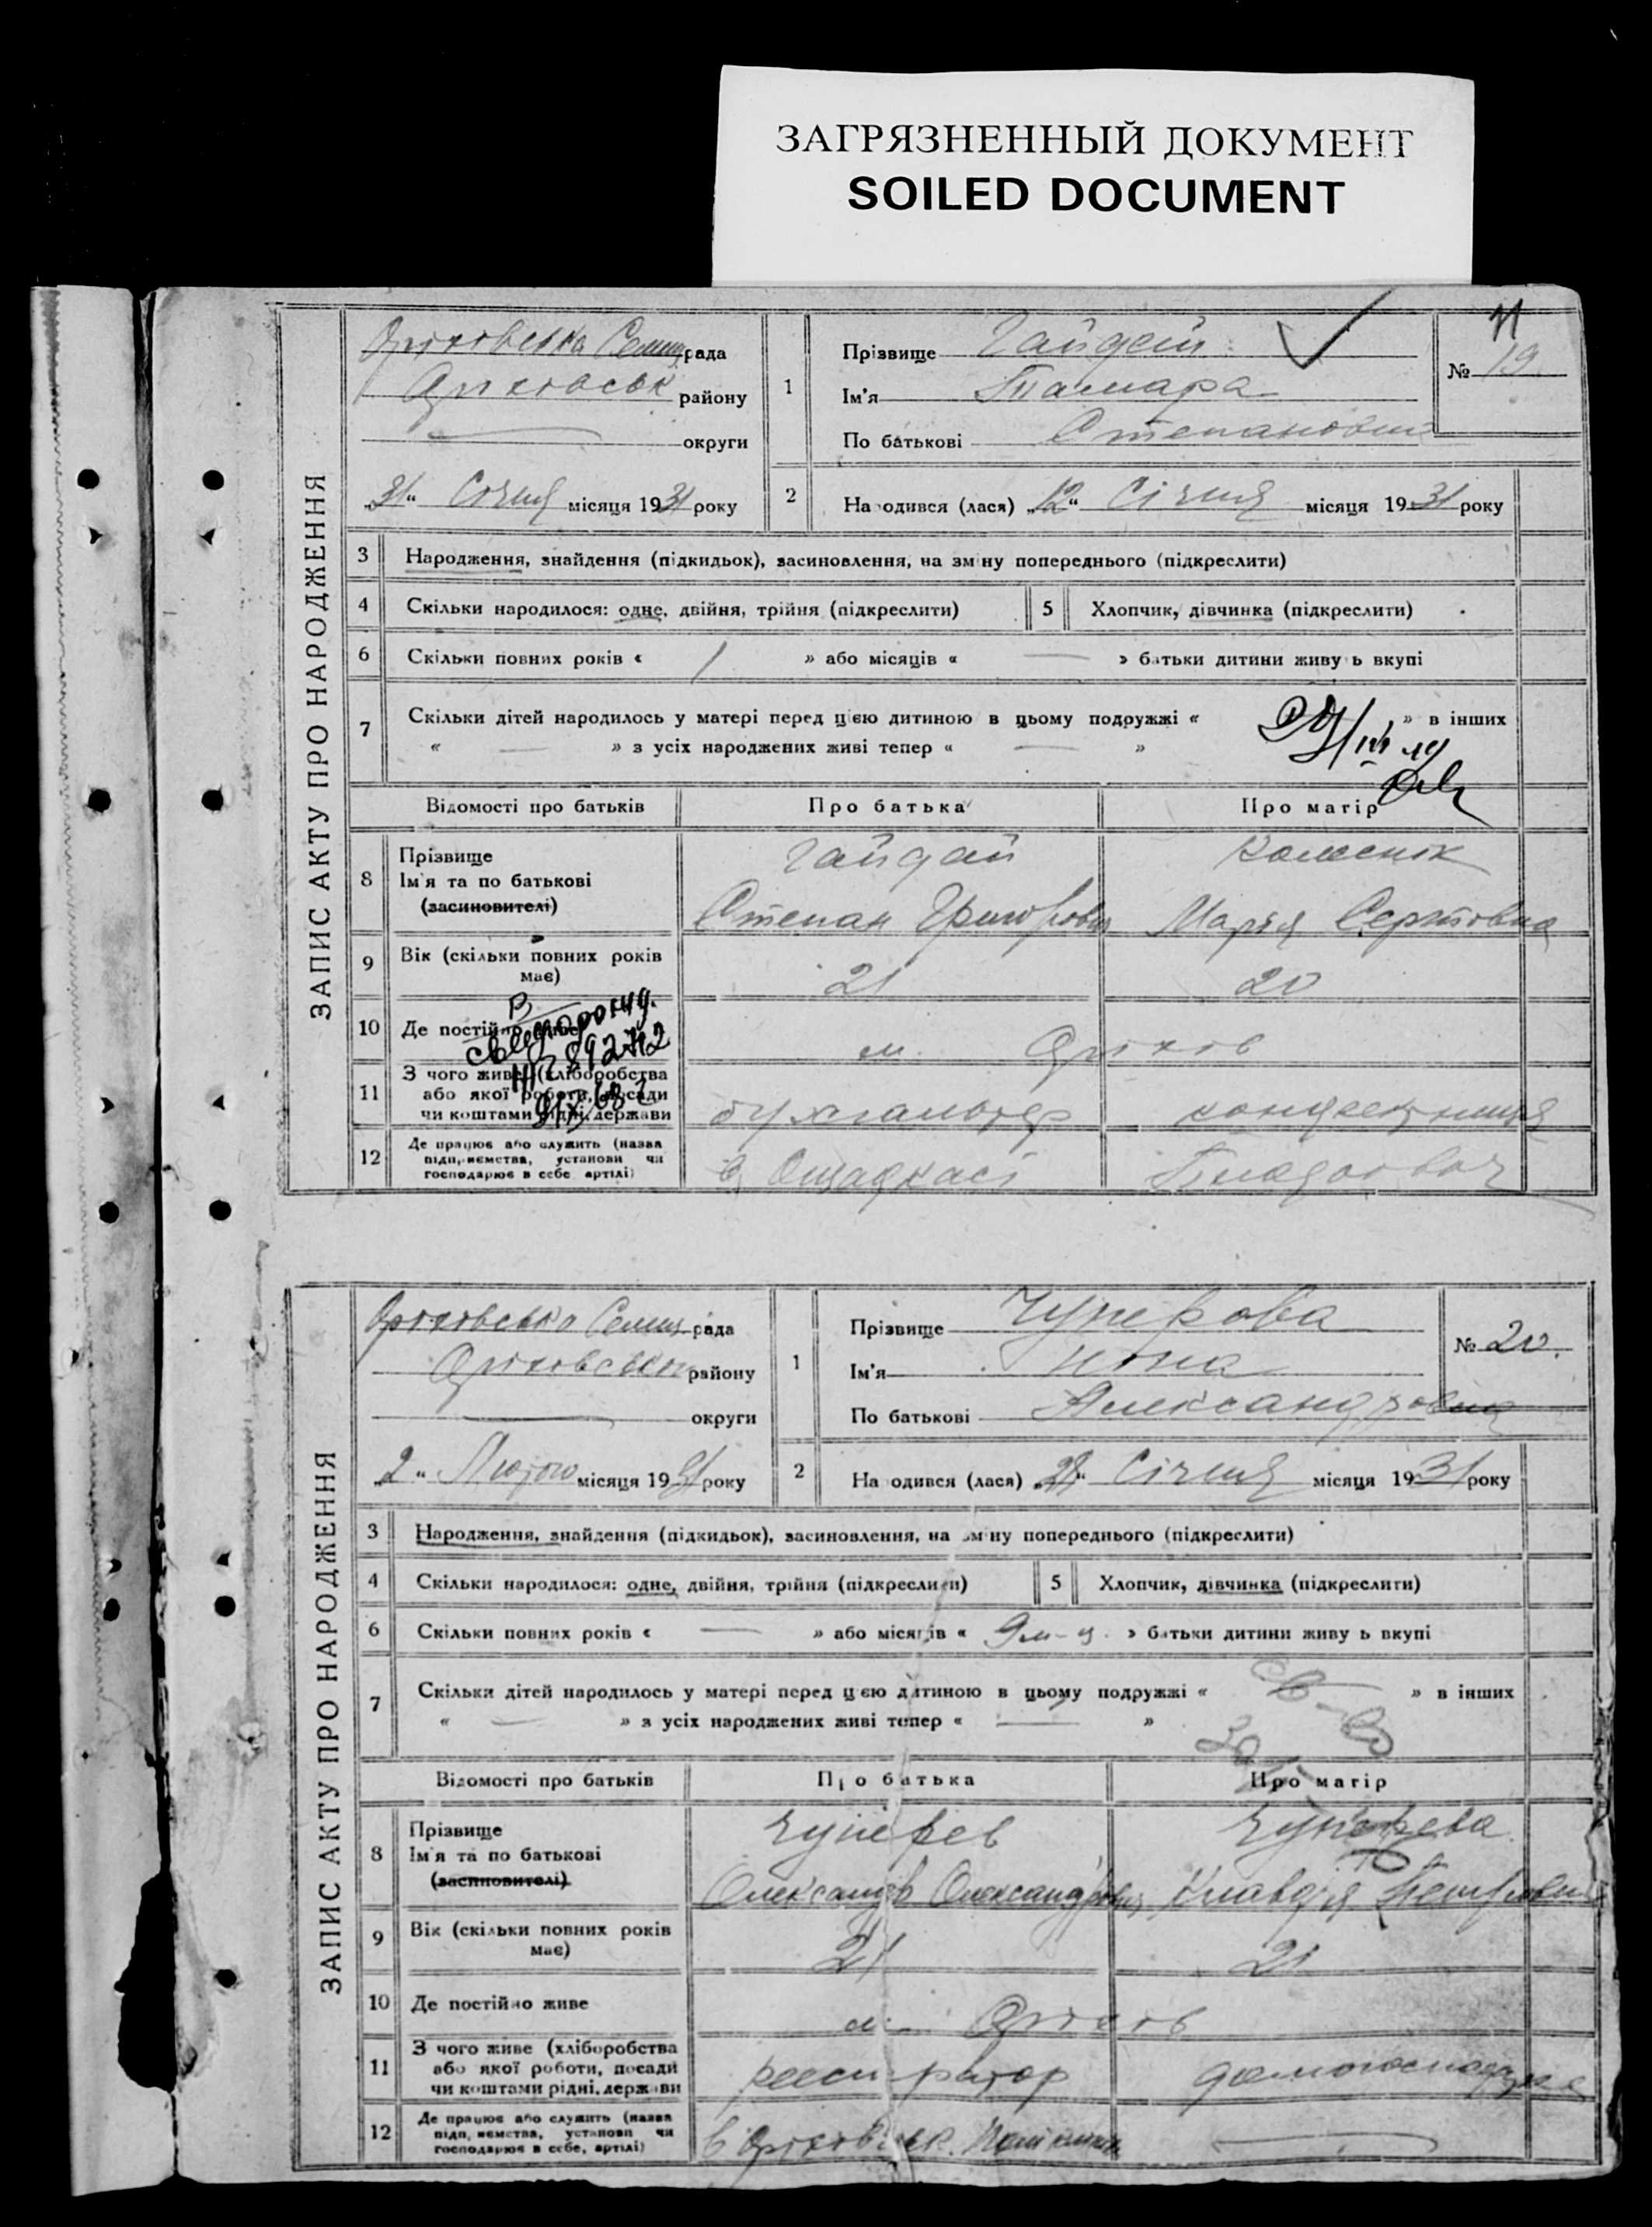 ЗАГРЯЗНЕННЫЙ ДОКУМЕНТ
SOILED DOCUMENT
ЗАПИС АКТУ ПРО НАРОДЖЕННЯ
Оріховська Селищ рада
Оріховськ району
округи
„31“ Січня місяця 1931 року
1
Прізвище Гайдай
Ім'я Тамара
По батькові Степановна
№ 19
2 На одився (лася) „12“ Січня місяця 1931 року
3 Народження, знайдення (підкидьок), засиновлення, на зм ну попереднього (підкреслити)
4 Скільки народилося: одне, двійня, трійня (підкреслити) 5 Хлопчик, дівчинка (підкреслити)
6 Скільки повних років « 1 » або місяців « — » батьки дитини живу ь вкупі
7 Скільки дітей народилось у матері перед цією дитиною в цьому подружжі « » в інших
« — » з усіх народжених живі тепер « — »
Відомості про батьків Про батька Про матір
8 Прізвище Гайдай
Ім'я та по батькові
(засиновителі) Степан Григорович Марія Сергіовна
9 Вік (скільки повних років має) 21 20
10 Де постійно живе м. Оріхів
11 З чого живе (хліборобства
або якої роботи, посади
чи коштами рідні, держави бухгальтер
12 Де працює або служить (назва
підп, иємства, установи чи
господарює в себе артілі) в Ощадкасі
ЗАПИС АКТУ ПРО НАРОДЖЕННЯ
Оріховська Селищ рада
Оріховськ району
округи
„2“ Лютого місяця 1931 року
1
Прізвище
Ім'я Нона
По батькові Александровна
№ 20.
2 На одився (лася) Січня місяця 1931 року
3 Народження, знайдення (підкидьок), засиновлення, на зм ну попереднього (підкреслити)
4 Скільки народилося: одне, двійня, трійня (підкреслити) 5 Хлопчик, дівчинка (підкреслити)
6 Скільки повних років « — » або місяців « 9 м-ц » батьки дитини живу ь вкупі
7 Скільки дітей народилось у матері перед цією дитиною в цьому подружжі « » в інших
« — » з усіх народжених живі тепер « — »
Відомості про батьків Про батька Про матір
8 Прізвище
Ім'я та по батькові
(засиновителі) Олександр Олександрович Клавдія Петровна
9 Вік (скільки повних років має) 21 21
10 Де постійно живе м. Оріхів
11 З чого живе (хліборобства
або якої роботи, посади
чи коштами рідні, держави домогосподарка
12 Де працює або служить (назва
підп, иємства, установи чи
господарює в себе, артілі) в Оріховськ.